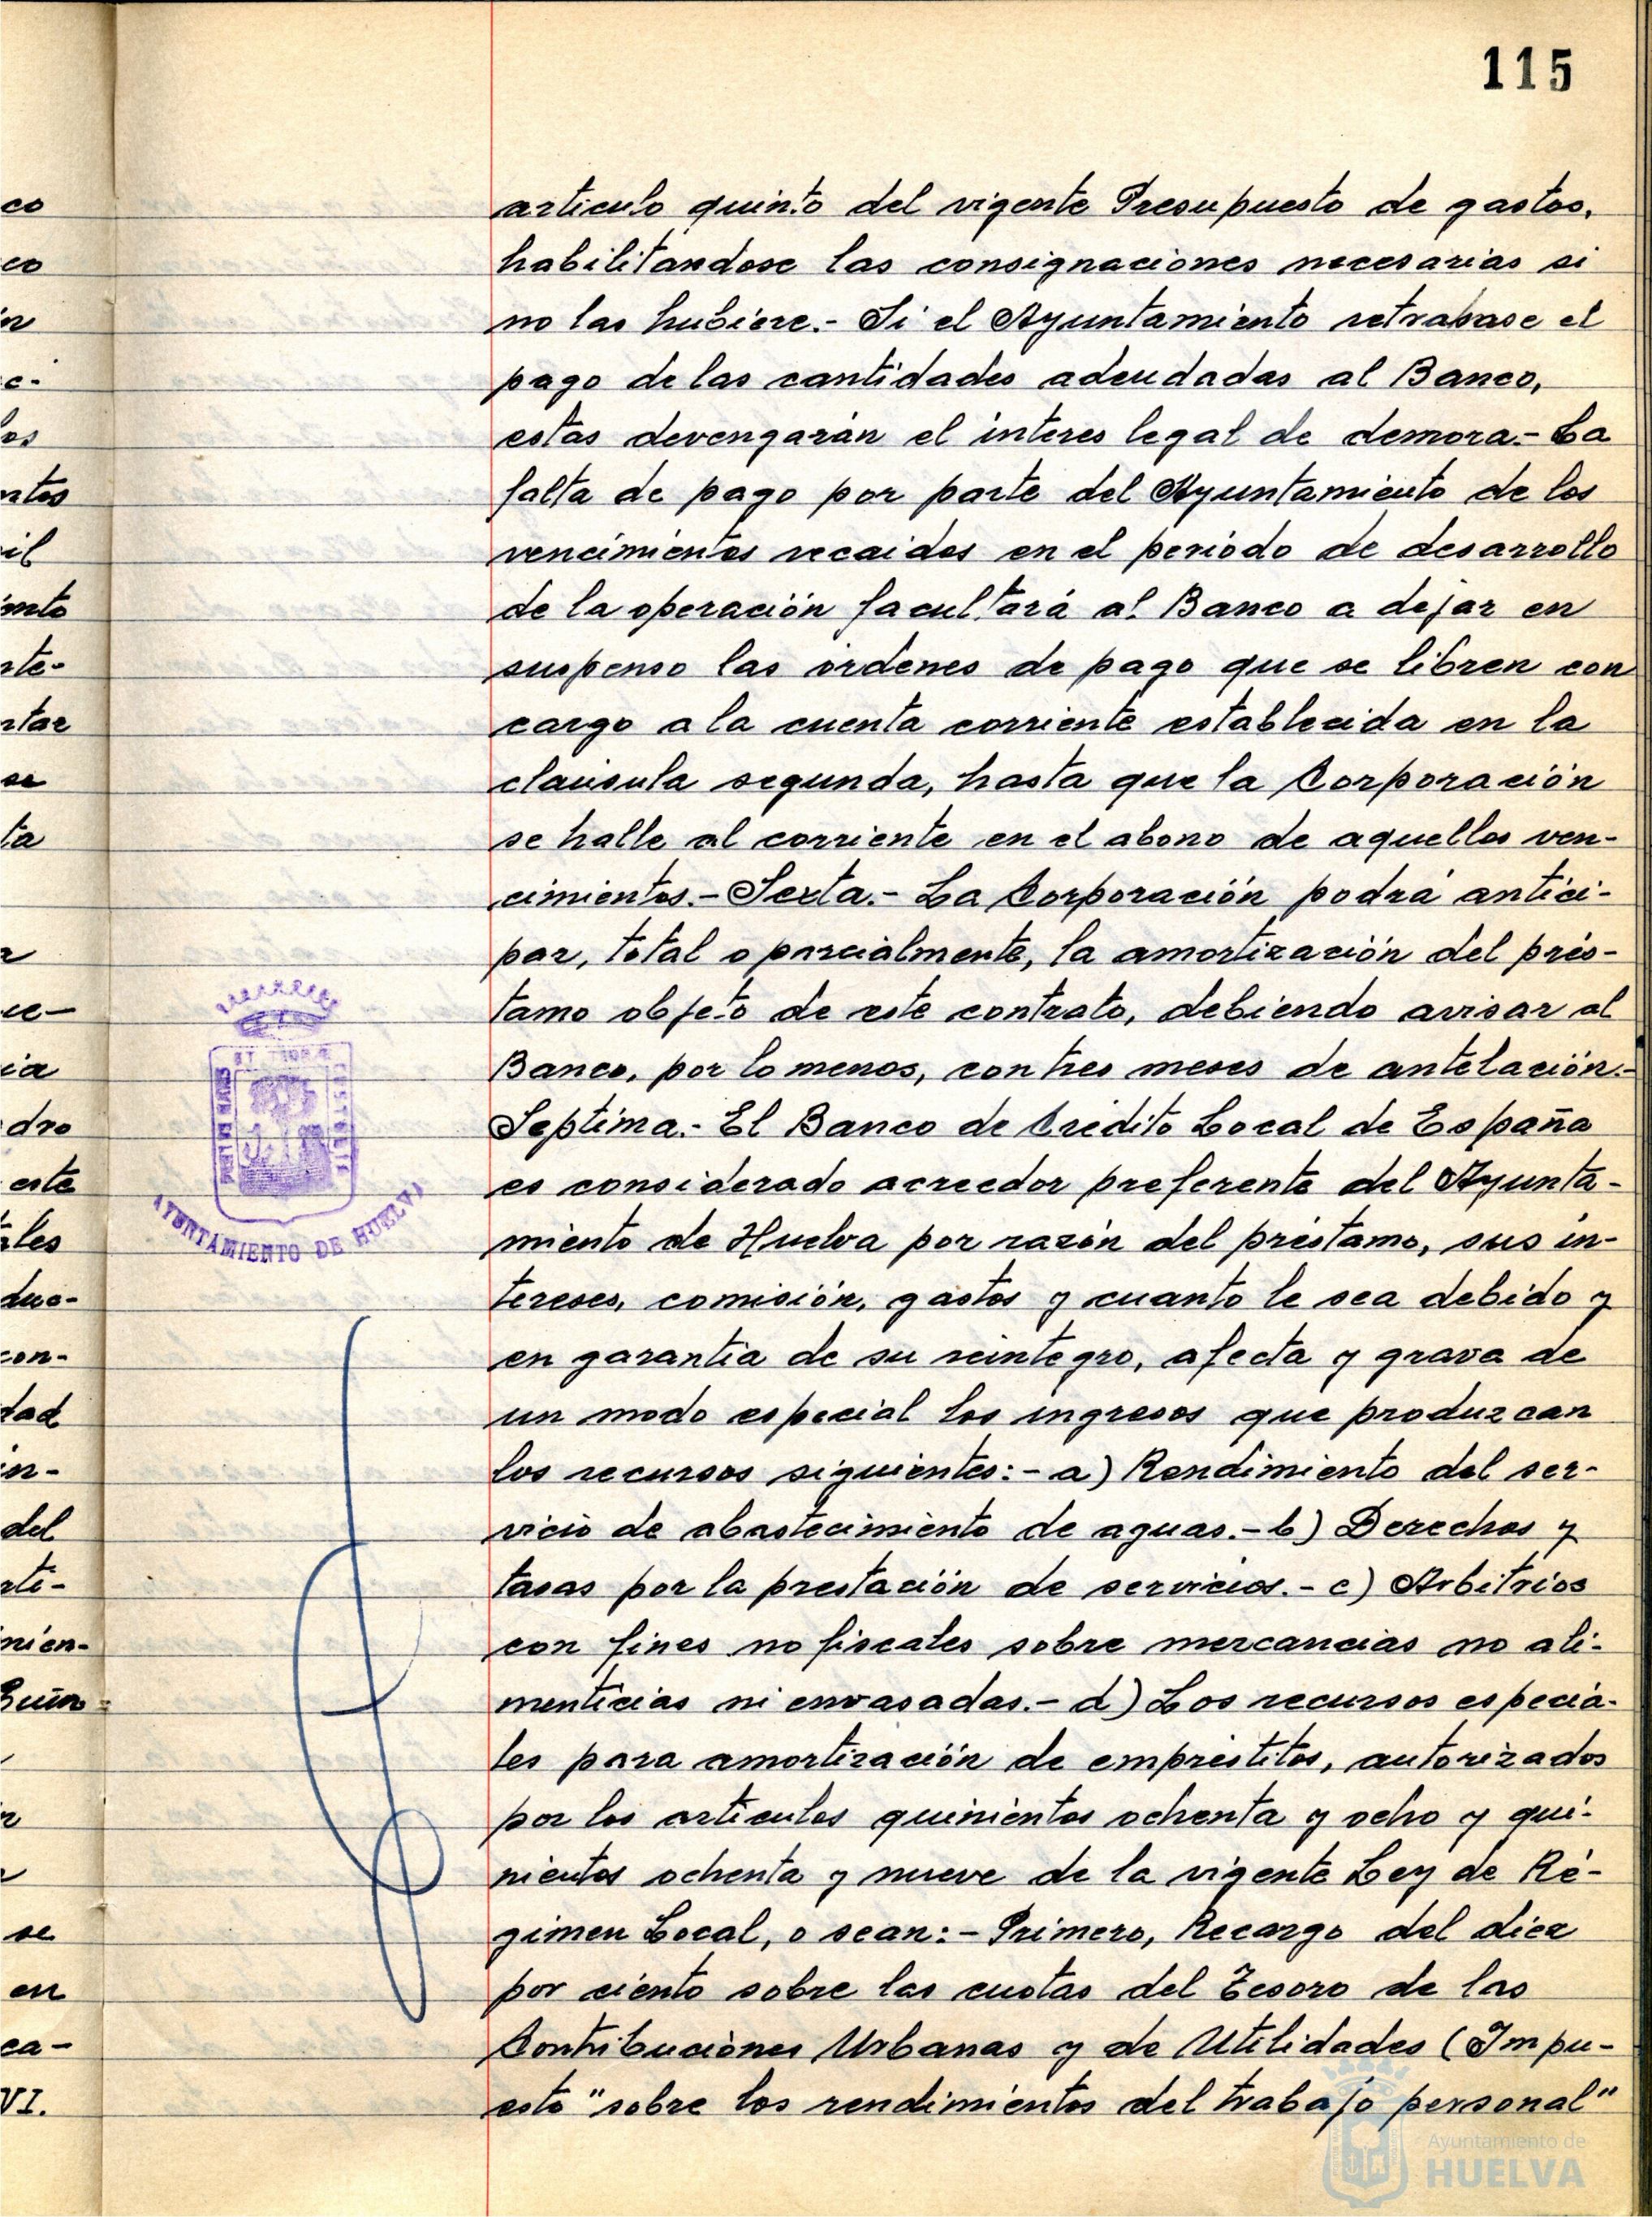 115
articulo quinto del vigente Presupuesto de gastos,
habilitandose las consignaciones necesarias si
no las hubiere.- Si el Ayuntamiento retrasase el
pago de las cantidades adeudadas al Banco,
estas devengarán el interes legal de demora.- La
falta de pago por parte del Ayuntamiento de los
vencimientos recaidos en el periodo de desarrollo
de la operación facultará al Banco a dejar en
suspenso las órdenes de pago que se libren con
cargo a la cuenta corriente establecida en la
clausula segunda, hasta que la Corporación
se halle al corriente en el abono de aquellos ven-
cimientos.- Sexta.- La Corporación podrá antici-
par, total o parcialmente, la amortización del prés-
tamo objeto de este contrato, debiendo avisar al
Banco, por lo menos, con tres meses de antelación.-
Septima.- El Banco de Crédito Local de España
es considerado acreedor preferente del Ayunta-
miento de Huelva por razón del préstamo, sus in-
tereses, comisión, gastos y cuanto le sea debido y
en garantia de su reintegro, afecta y grava de
un modo especial los ingresos que produzcan
los recursos siguientes:- a) Rendimiento del ser-
vicio de abastecimiento de aguas.- b) Derechos y
tasas por la prestación de servicios.- c) Arbitrios
con fines no fiscales sobre mercancias no ali-
menticias ni envasadas.- d) Los recursos especia-
les para amortización de empréstitos, autorizados
por los articulos quinientos ochenta y ocho y qui-
nientos ochenta y nueve de la vigente Ley de Ré-
gimen Local, o sean:- Primero, Recargo del diez
por ciento sobre las cuotas del Tesoro de las
Contribuciones Urbanas y de Utilidades (Impu-
esto "sobre los rendimientos del trabajo personal"
AYUNTAMIENTO DE HUELVA
Ayuntamiento de
HUELVA
co
co
c.
los
ntos
il
nte-
ntar
se
ta
ia
dro
este
con-
dad
in-
del
se
en
ca-
VI.